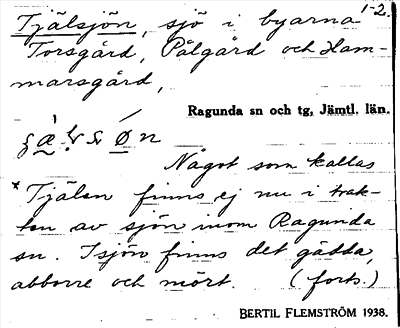 1-2.
Tjälsjön, sjö i byarna
Torsgård, Pålgård och Ham-
marsgård,
Ragunda sn och tg, Jämtl. län.
Något som kallas
*Tjälen finns ej nu i trak-
ten av sjön inom Ragunda
sn. I sjön finns det gädda,
abborre och mört. (forts.)
BERTIL FLEMSTRÖM 1938.